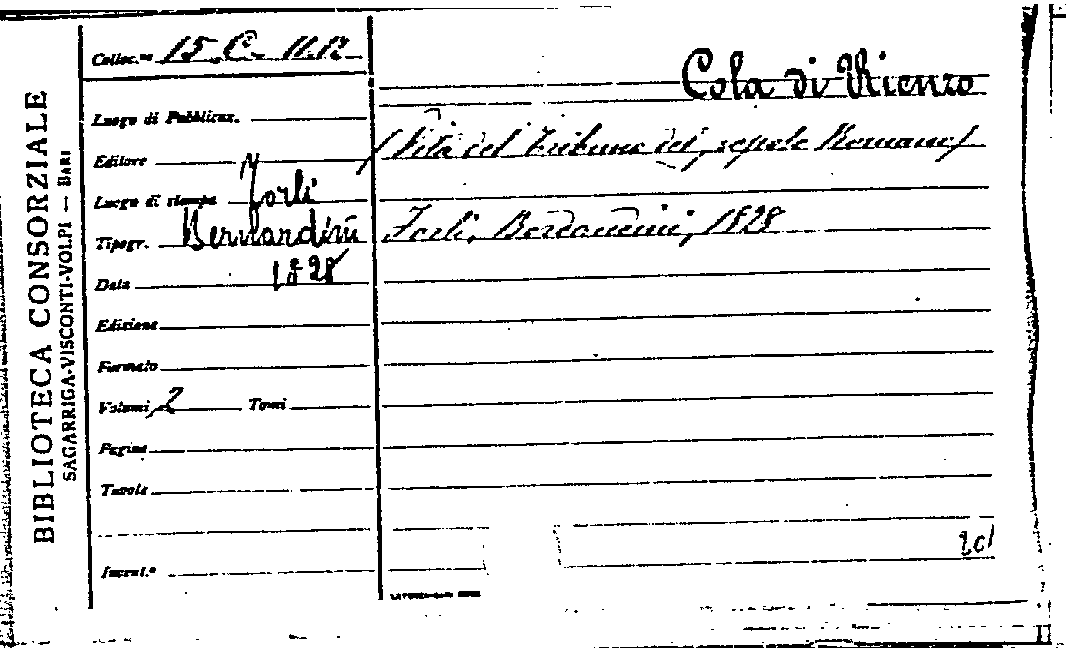 BIBLIOTECA CONSORZIALE
SAGARRIGA-VISCONTI-VOLPI — BARI
Colloc.ne 15. C. 11.12
Luogo di Pubblicaz.
Editore
Luogo di stampa Forlì
Tipogr. Bernardini
Data 1828
Edizione
Formato
Volumi 2 Tomi
Pagine
Tavole
Invent.º
Cola di Rienzo
(Vita del Tribuno del popolo Romano)
Forlì, Bordandini, 1828